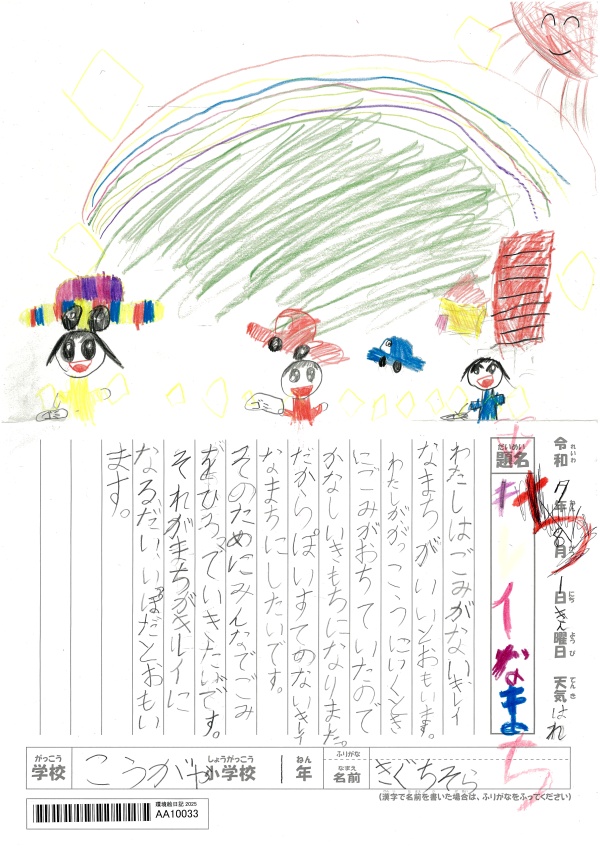 令和 7年 8月 1日 きん曜日 天気 はれ
題名 キレイなまち
わたしはごみがないキレイ
なまちがいいとおもいます。
わたしががっこうにいくとき
にごみがおちていたので
かなしいきもちになりました。
だからぽいすてのないキレイ
なまちにしたいです。
そのためにみんなでごみ
をひろっていきたいです。
それがまちがキレイに
なるだいいっぽだとおもい
ます。
学校 こうがや小学校 1年 名前 きぐちそら
(漢字で名前を書いた場合は、ふりがなをふってください)
環境絵日記 2025
AA10033